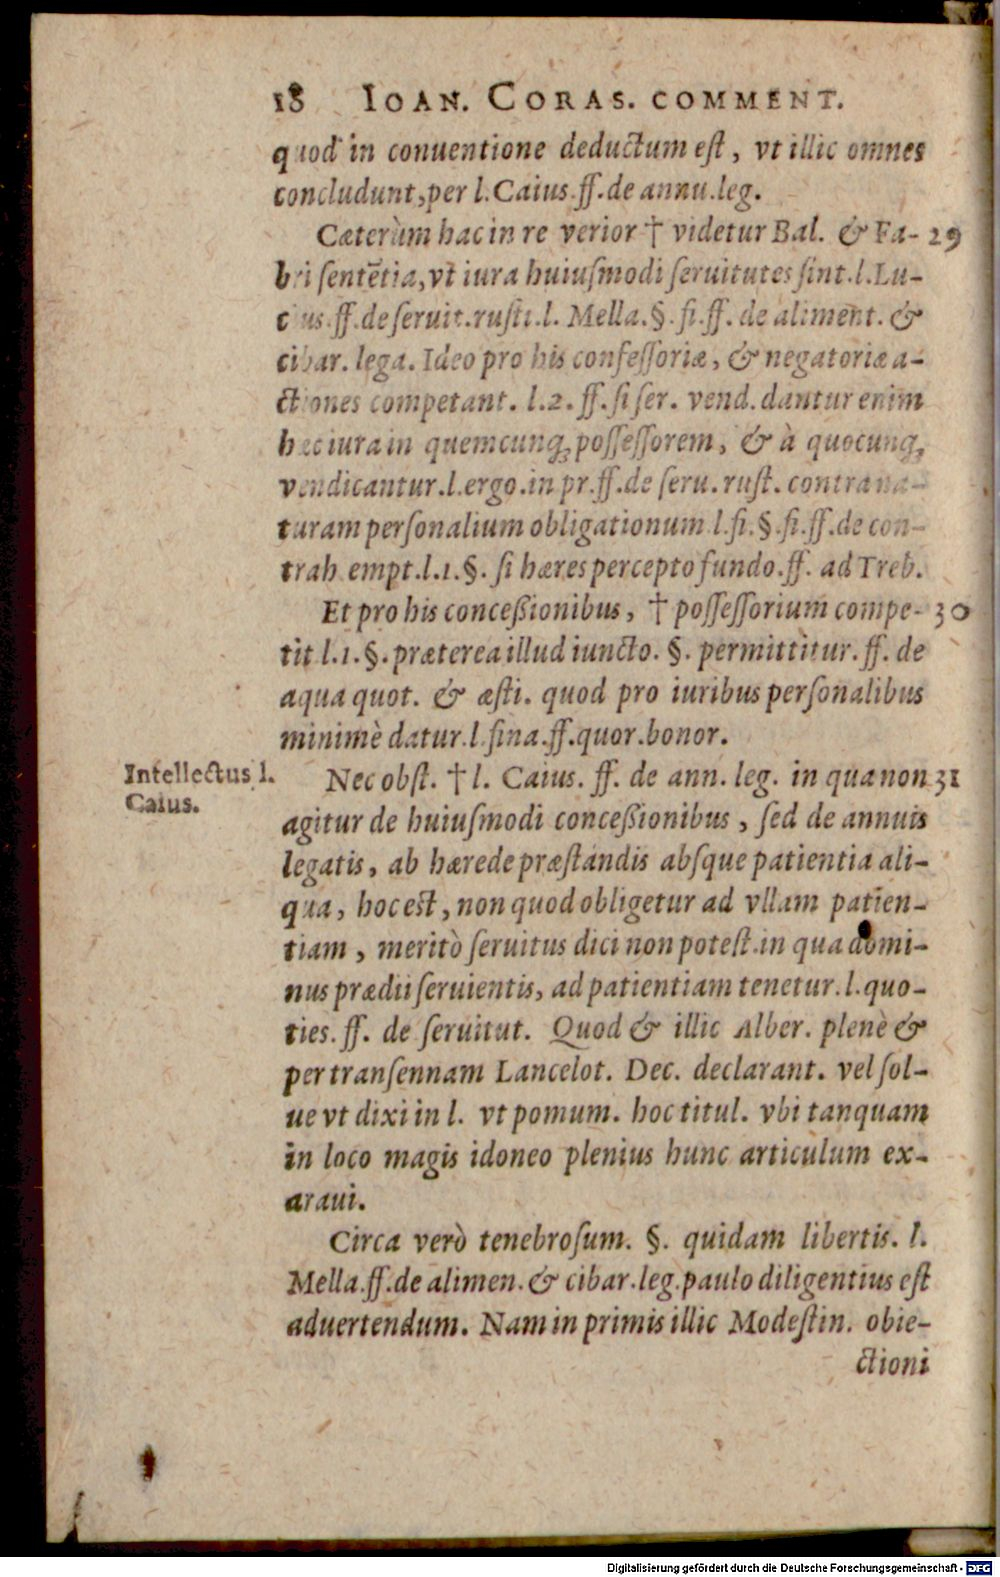 18 IOAN. CORAS. COMMENT.
quod in conuentione deductum est, vt illic omnes
concludunt, per l. Caius. ff. de annu. leg.
Cæterùm hac in re verior † videtur Bal. & Fa- 29
bri sentētia, vt iura huiusmodi seruitutes sint. l. Lu-
cius. ff. de seruit. rusti. l. Mella. §. fi. ff. de aliment. &
cibar. lega. Ideo pro his confessoriæ, & negatoriæ a-
ctiones competant. l. 2. ff. si ser. vend. dantur enim
hæc iura in quemcunq; possessorem, & à quocunq;
vendicantur. l. ergo. in pr. ff. de seru. rust. contra na-
turam personalium obligationum l. fi. §. fi. ff. de con-
trah empt. l. 1. §. si hæres percepto fundo. ff. ad Treb.
Et pro his conceßionibus, † possessorium compe- 30
tit l. 1. §. præterea illud iuncto. §. permittitur. ff. de
aqua quot. & æsti. quod pro iuribus personalibus
minimè datur. l. fina. ff. quor. bonor.
Intellectus l.
Caius.
Nec obst. † l. Caius. ff. de ann. leg. in qua non 31
agitur de huiusmodi conceßionibus, sed de annuis
legatis, ab hærede præstandis absque patientia ali-
qua, hoc est, non quod obligetur ad vllam patien-
tiam, meritò seruitus dici non potest. in qua domi-
nus prædii seruientis, ad patientiam tenetur. l. quo-
ties. ff. de seruitut. Quod & illic Alber. plenè &
per transennam Lancelot. Dec. declarant. vel sol-
ue vt dixi in l. vt pomum. hoc titul. vbi tanquam
in loco magis idoneo plenius hunc articulum ex-
araui.
Circa verò tenebrosum. §. quidam libertis. l.
Mella. ff. de alimen. & cibar. leg. paulo diligentius est
aduertendum. Nam in primis illic Modestin. obie-
ctioni
Digitalisierung gefördert durch die Deutsche Forschungsgemeinschaft - DFG